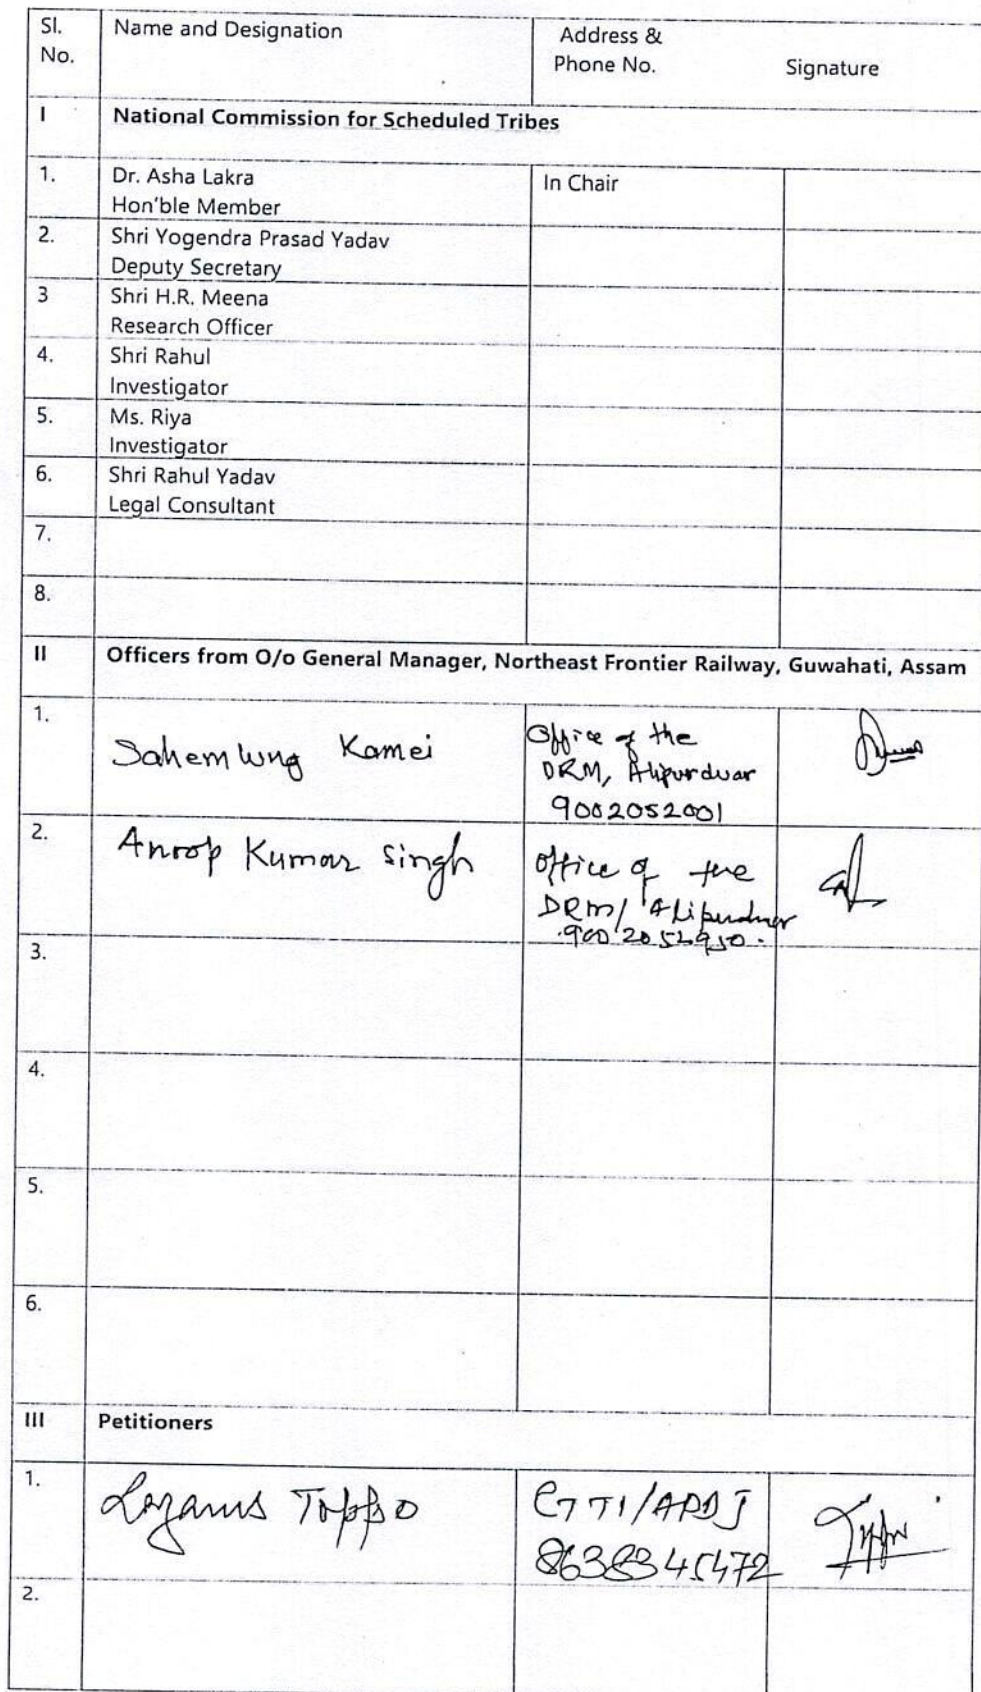 Sl. No.
Name and Designation
Address & Phone No.
Signature
I
National Commission for Scheduled Tribes
1.
Dr. Asha Lakra
Hon'ble Member
In Chair
2.
Shri Yogendra Prasad Yadav
Deputy Secretary
3
Shri H.R. Meena
Research Officer
4.
Shri Rahul
Investigator
5.
Ms. Riya
Investigator
6.
Shri Rahul Yadav
Legal Consultant
7.
8.
II
Officers from O/o General Manager, Northeast Frontier Railway, Guwahati, Assam
1.
Sahemlung Kamei
Office of the
DRM, Alipurduar
9002052001
2.
Anoop Kumar Singh
office of the
DRM/ Alipurduar
9002052950.
3.
4.
5.
6.
III
Petitioners
1.
Lazarus Toppo
/APDJ
2.